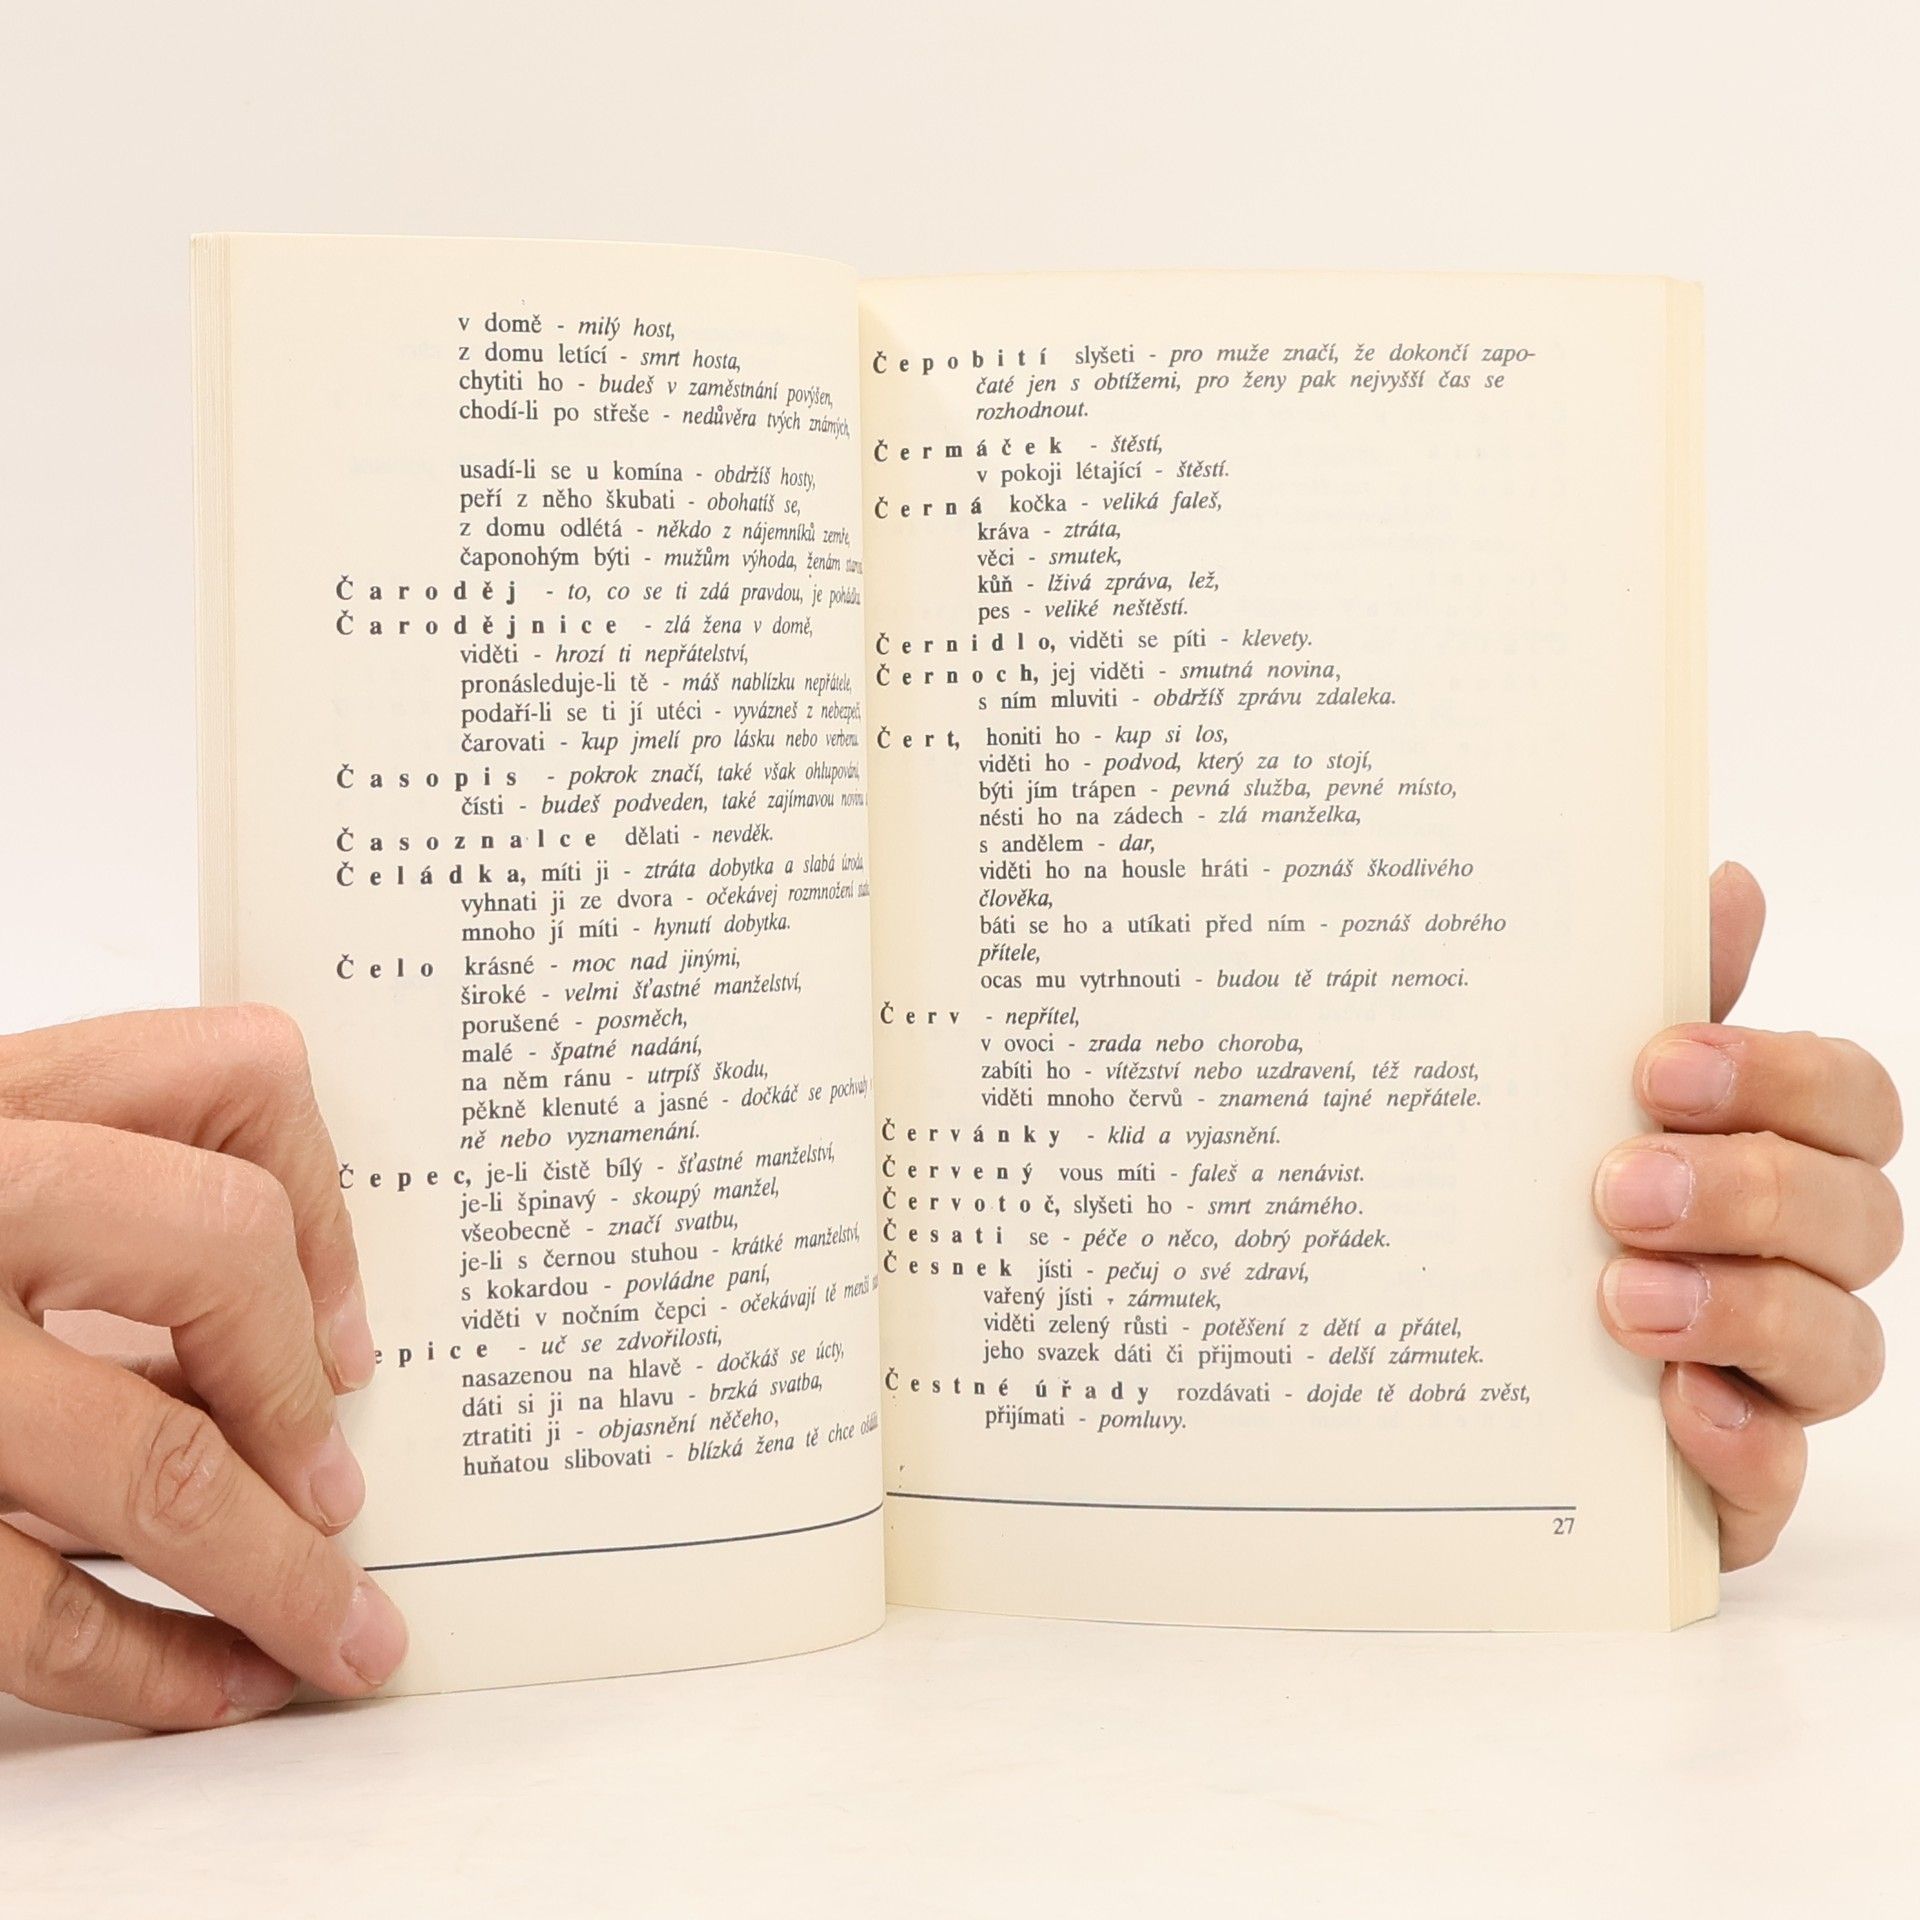 v domě - milý host,
z domu letící - smrt hosta,
chytiti ho - budeš v zaměstnání povýšen,
chodí-li po střeše - nedůvěra tvých známých,
usadí-li se u komína - obdržíš hosty,
peří z něho škubati - obohatíš se,
z domu odlétá - někdo z nájemníků zemře,
čaponohým býti - mužům výhoda, ženám
Čaroděj - to, co se ti zdá pravdou, je pohádka
Čarodějnice - zlá žena v domě,
viděti - hrozí ti nepřátelství,
pronásleduje-li tě - máš nablízku nepřátele,
podaří-li se ti jí utéci - vyvázneš z nebezpečí,
čarovati - kup jmelí pro lásku nebo verbenu.
Časopis - pokrok značí, také však ohlupování,
čísti - budeš podveden, také zajímavou novinu
Časoznalce dělati - nevděk.
Čeládka, míti ji - ztráta dobytka a slabá úroda,
vyhnati ji ze dvora - očekávej rozmnožení
mnoho jí míti - hynutí dobytka.
Čelo krásné - moc nad jinými,
široké - velmi šťastné manželství,
porušené - posměch,
malé - špatné nadání,
na něm ránu - utrpíš škodu,
pěkně klenuté a jasné - dočkáč se pochvaly
ně nebo vyznamenání.
Čepec, je-li čistě bílý - šťastné manželství,
je-li špinavý - skoupý manžel,
všeobecně - značí svatbu,
je-li s černou stuhou - krátké manželství,
s kokardou - povládne paní,
viděti v nočním čepci - očekávají tě menší
epice - uč se zdvořilosti,
nasazenou na hlavě - dočkáš se úcty,
dáti si ji na hlavu - brzká svatba,
ztratiti ji - objasnění něčeho,
huňatou slibovati - blízká žena tě chce
Čepobití slyšeti - pro muže značí, že dokončí zapo-
čaté jen s obtížemi, pro ženy pak nejvyšší čas se
rozhodnout.
Čermáček - štěstí,
v pokoji létající - štěstí.
Černá kočka - veliká faleš,
kráva - ztráta,
věci - smutek,
kůň - lživá zpráva, lež,
pes - veliké neštěstí.
Černidlo, viděti se píti - klevety.
Černoch, jej viděti - smutná novina,
s ním mluviti - obdržíš zprávu zdaleka.
Čert, honiti ho - kup si los,
viděti ho - podvod, který za to stojí,
býti jím trápen - pevná služba, pevné místo,
nésti ho na zádech - zlá manželka,
s andělem - dar,
viděti ho na housle hráti - poznáš škodlivého
člověka,
báti se ho a utíkati před ním - poznáš dobrého
přítele,
ocas mu vytrhnouti - budou tě trápit nemoci.
Červ - nepřítel,
v ovoci - zrada nebo choroba,
zabíti ho - vítězství nebo uzdravení, též radost,
viděti mnoho červů - znamená tajné nepřátele.
Červánky - klid a vyjasnění.
Červený vous míti - faleš a nenávist.
Červotoč, slyšeti ho - smrt známého.
Česati se - péče o něco, dobrý pořádek.
Česnek jísti - pečuj o své zdraví,
vařený jísti - zármutek,
viděti zelený růsti - potěšení z dětí a přátel,
jeho svazek dáti či přijmouti - delší zármutek.
Čestné úřady rozdávati - dojde tě dobrá zvěst,
přijímati - pomluvy.
27